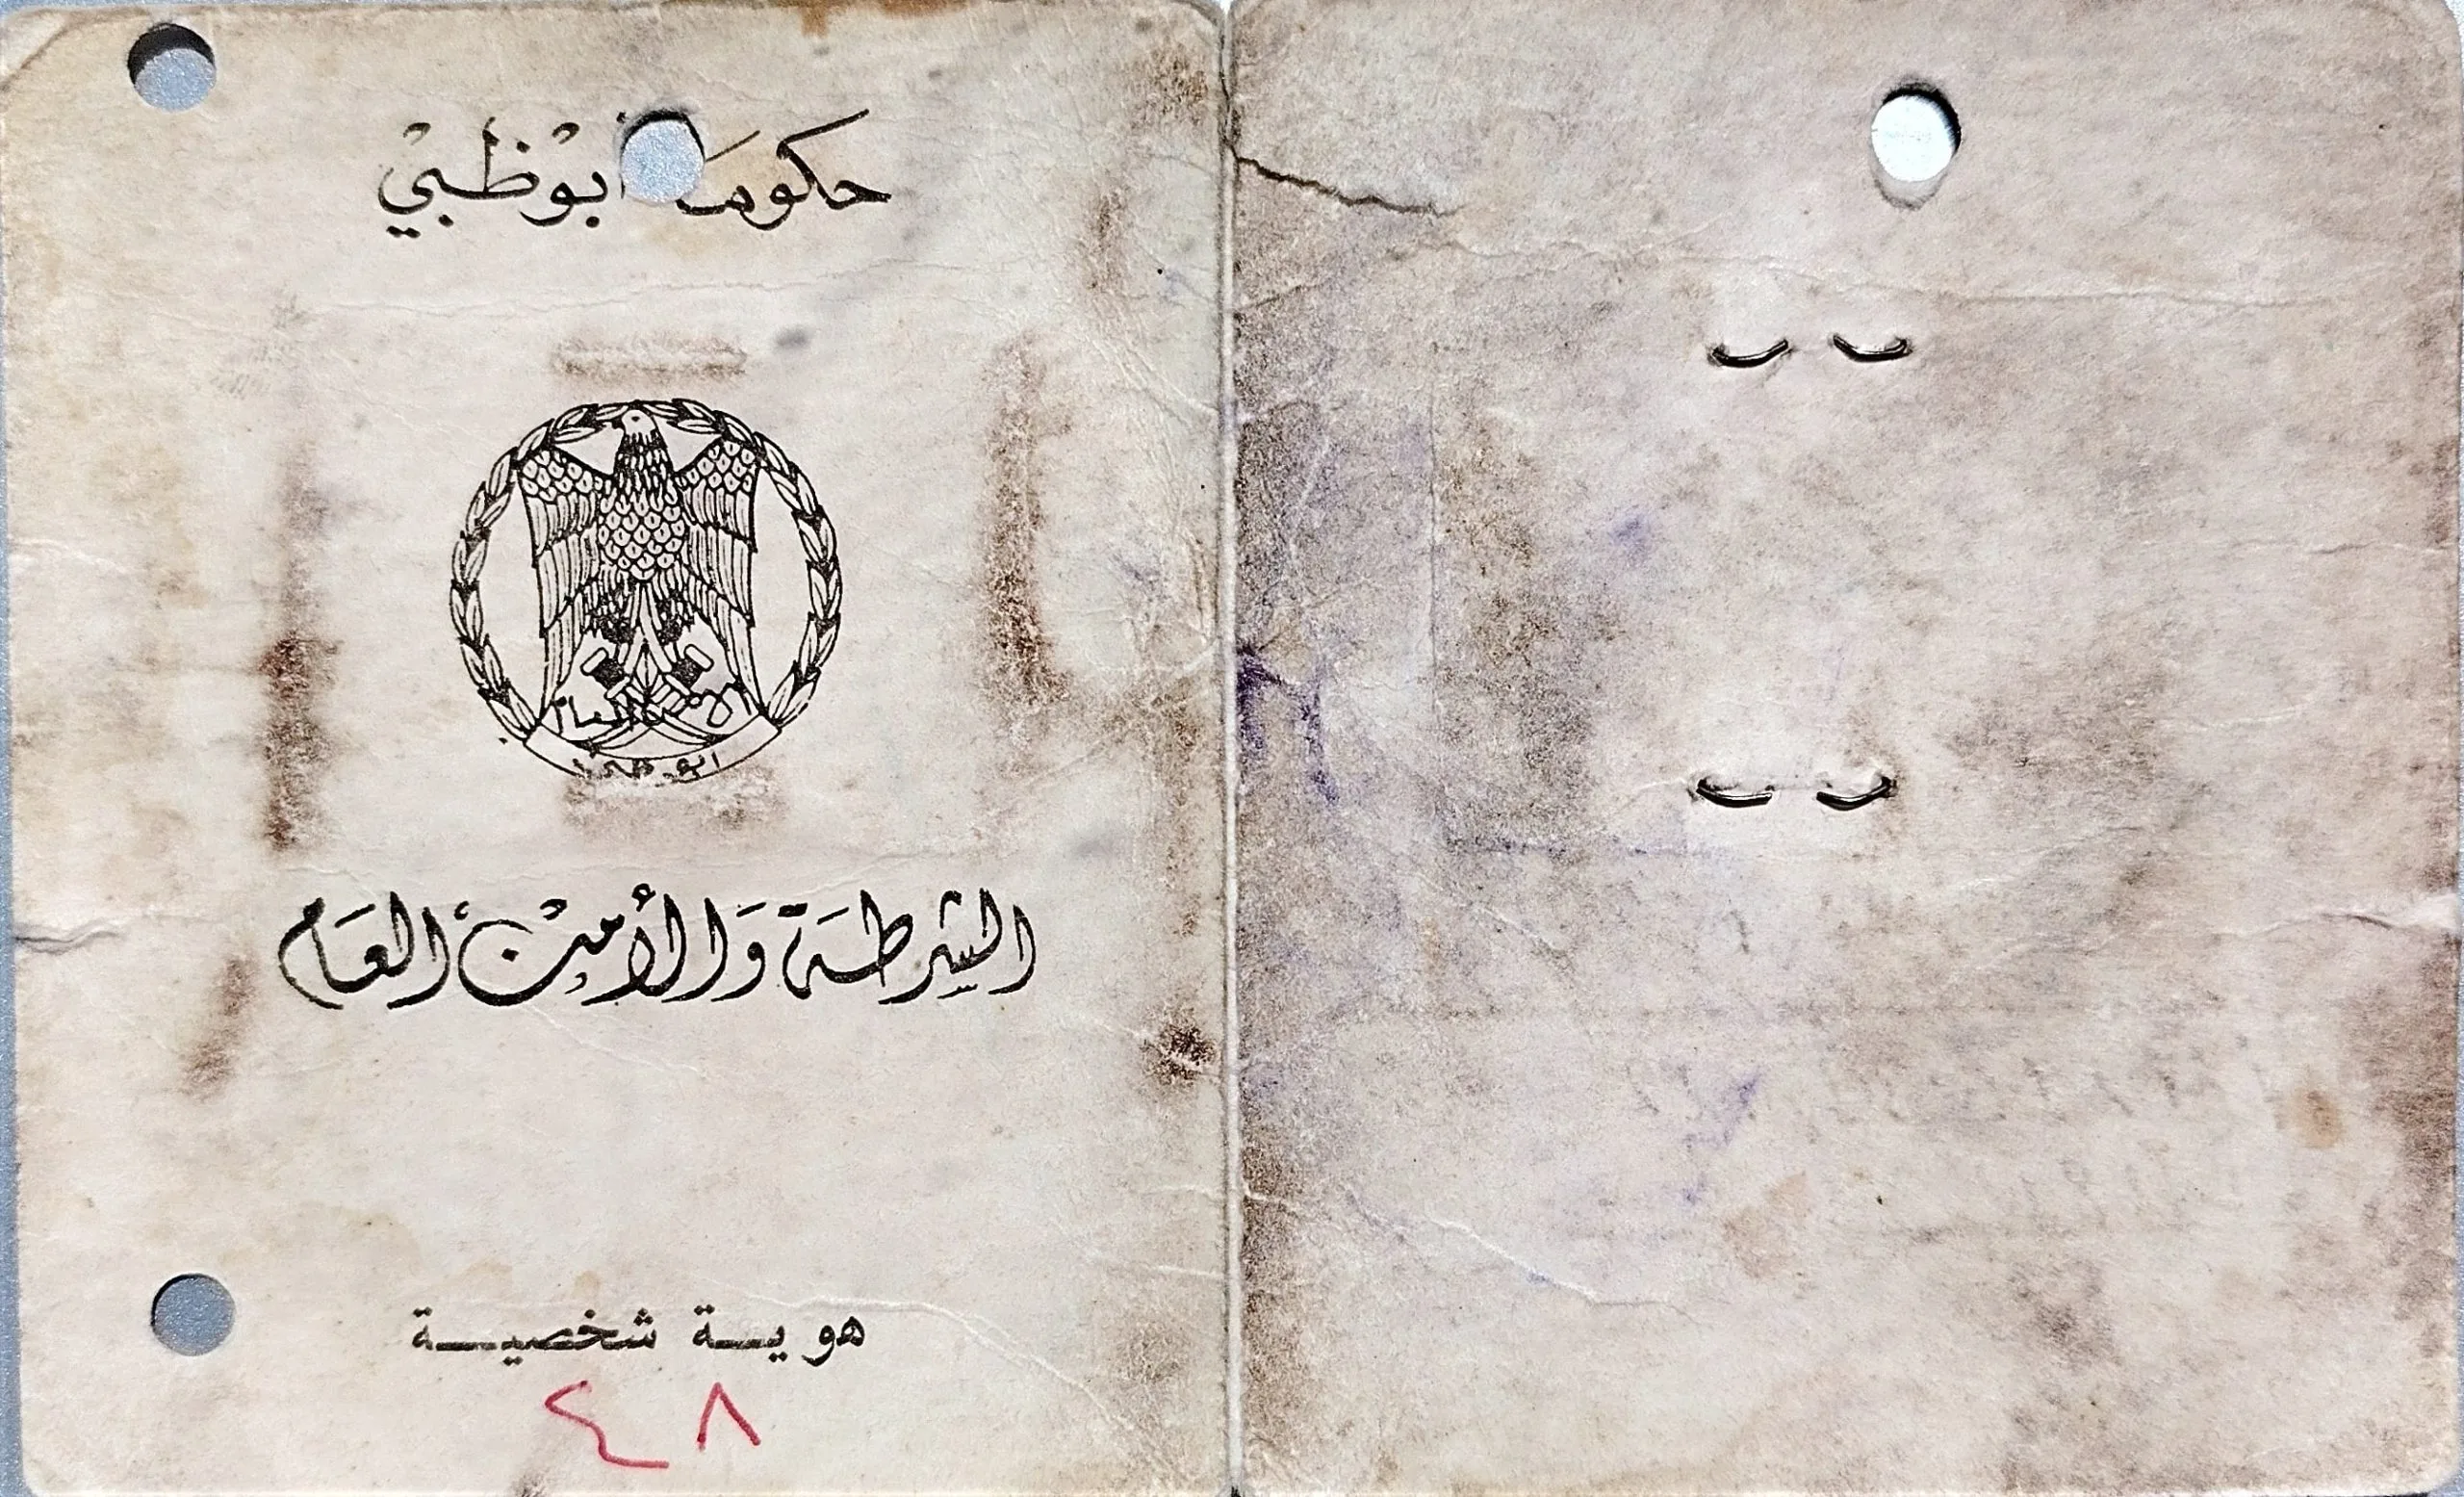 حكومة أبوظبي
الأمن العام
ابوظبي
الشرطة والأمن العام
هوية شخصية
٤٨